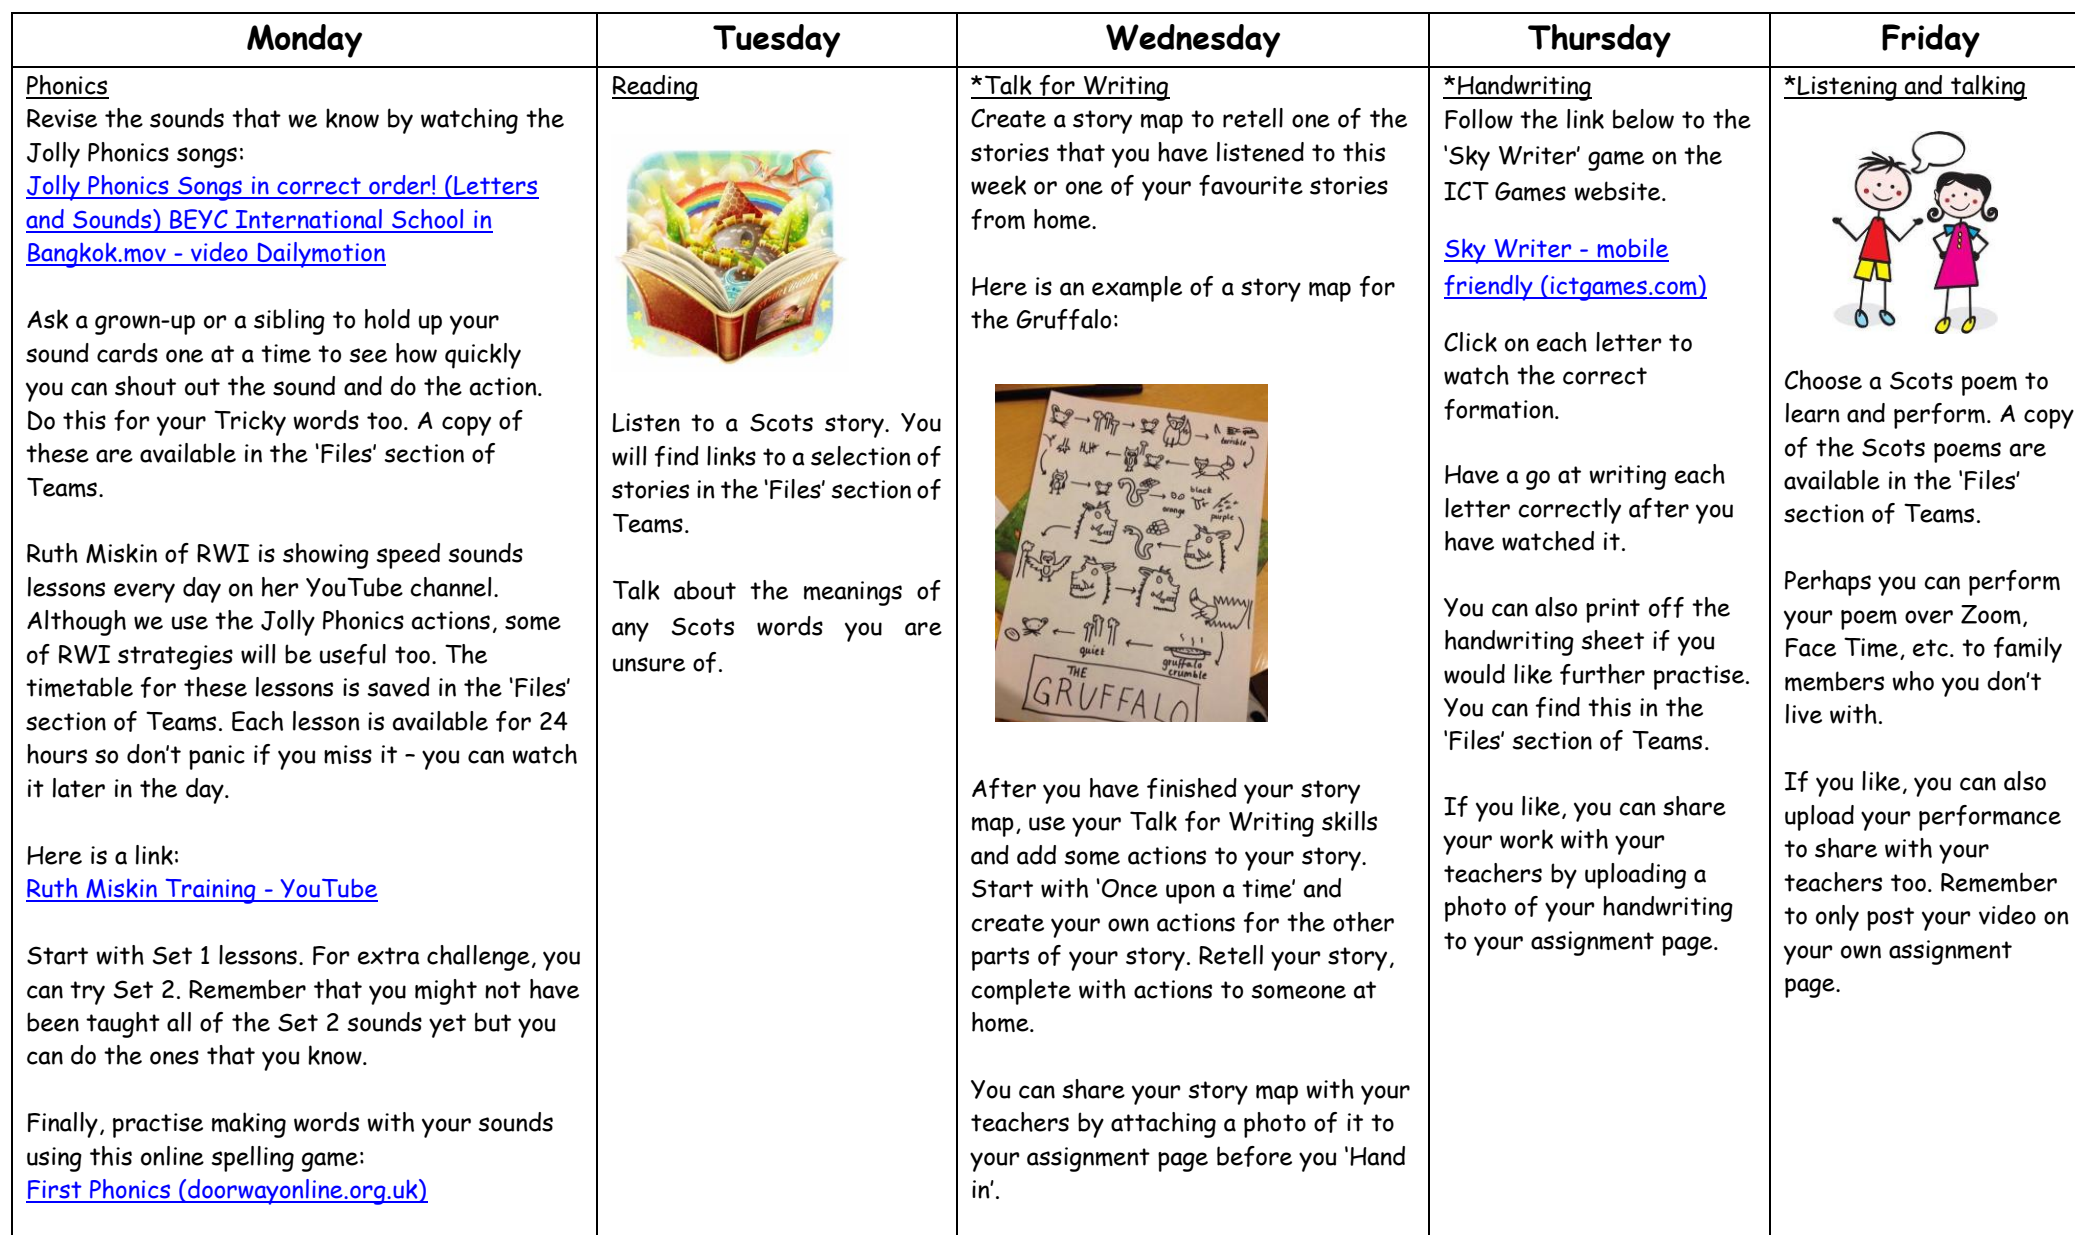 Monday
Phonics
Revise the sounds that we know by watching the
Jolly Phonics songs:
Jolly Phonics Songs in correct order! (Letters
and Sounds) BEYC International School in
Bangkok.mov - video Dailymotion
Ask a grown-up or a sibling to hold up your
sound cards one at a time to see how quickly
you can shout out the sound and do the action.
Do this for your Tricky words too. A copy of
these are available in the ‘Files’ section of
Teams.
Ruth Miskin of RWI is showing speed sounds
lessons every day on her YouTube channel.
Although we use the Jolly Phonics actions, some
of RWI strategies will be useful too. The
timetable for these lessons is saved in the ‘Files’
section of Teams. Each lesson is available for 24
hours so don’t panic if you miss it – you can watch
it later in the day.
Here is a link:
Ruth Miskin Training - YouTube
Start with Set 1 lessons. For extra challenge, you
can try Set 2. Remember that you might not have
been taught all of the Set 2 sounds yet but you
can do the ones that you know.
Finally, practise making words with your sounds
using this online spelling game:
First Phonics (doorwayonline.org.uk)
Tuesday
Reading
Listen to a Scots story. You
will find links to a selection of
stories in the ‘Files’ section of
Teams.
Talk about the meanings of
any Scots words you are
unsure of.
Wednesday
*Talk for Writing
Create a story map to retell one of the
stories that you have listened to this
week or one of your favourite stories
from home.
Here is an example of a story map for
the Gruffalo:
terrible
black
orange
purple
quiet
gruffalo
crumble
THE
GRUFFALO
After you have finished your story
map, use your Talk for Writing skills
and add some actions to your story.
Start with ‘Once upon a time’ and
create your own actions for the other
parts of your story. Retell your story,
complete with actions to someone at
home.
You can share your story map with your
teachers by attaching a photo of it to
your assignment page before you ‘Hand
in’.
Thursday
*Handwriting
Follow the link below to the
‘Sky Writer’ game on the
ICT Games website.
Sky Writer - mobile
friendly (ictgames.com)
Click on each letter to
watch the correct
formation.
Have a go at writing each
letter correctly after you
have watched it.
You can also print off the
handwriting sheet if you
would like further practise.
You can find this in the
‘Files’ section of Teams.
If you like, you can share
your work with your
teachers by uploading a
photo of your handwriting
to your assignment page.
Friday
*Listening and talking
Choose a Scots poem to
learn and perform. A copy
of the Scots poems are
available in the ‘Files’
section of Teams.
Perhaps you can perform
your poem over Zoom,
Face Time, etc. to family
members who you don’t
live with.
If you like, you can also
upload your performance
to share with your
teachers too. Remember
to only post your video on
your own assignment
page.